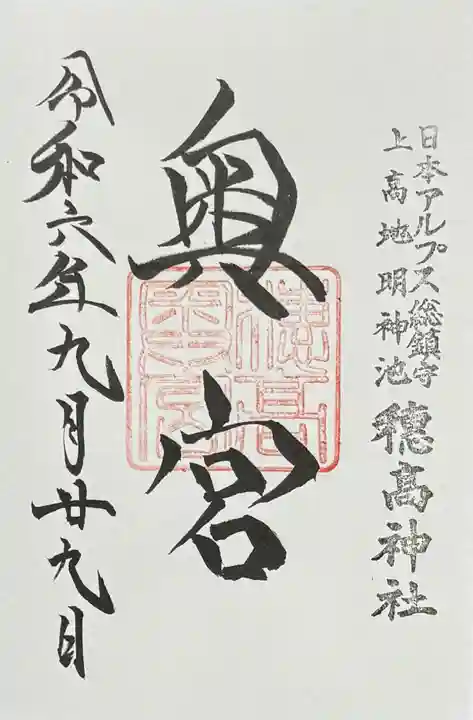 日本アルプス総鎮守
上高地明神池
穂高神社
奥宮
穂高
奥宮
令和六年九月廿九日